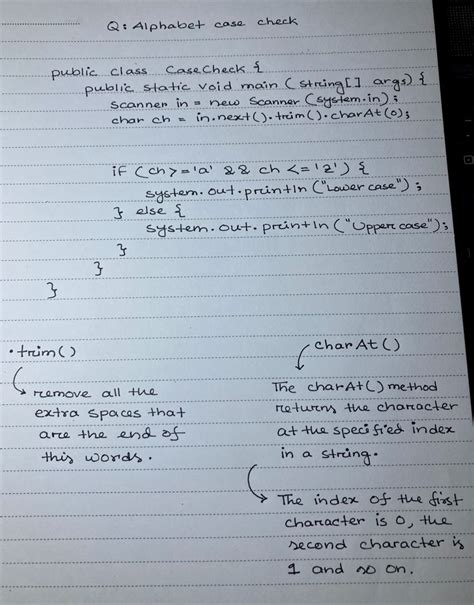 Q: Alphabet case check
public class CaseCheck {
public static void main (string[] args) {
scanner in = new scanner (system.in);
char ch = in.next().trim().charAt(0);
if (ch >= 'a' && ch <= 'z') {
system.out.println ("Lower case");
} else {
system.out.println ("Upper case");
}
}
}
• trim()
remove all the
extra spaces that
are the end of
this words.
charAt()
The charAt() method
returns the character
at the specified index
in a string.
The index of the first
character is 0, the
second character is
1 and so on.